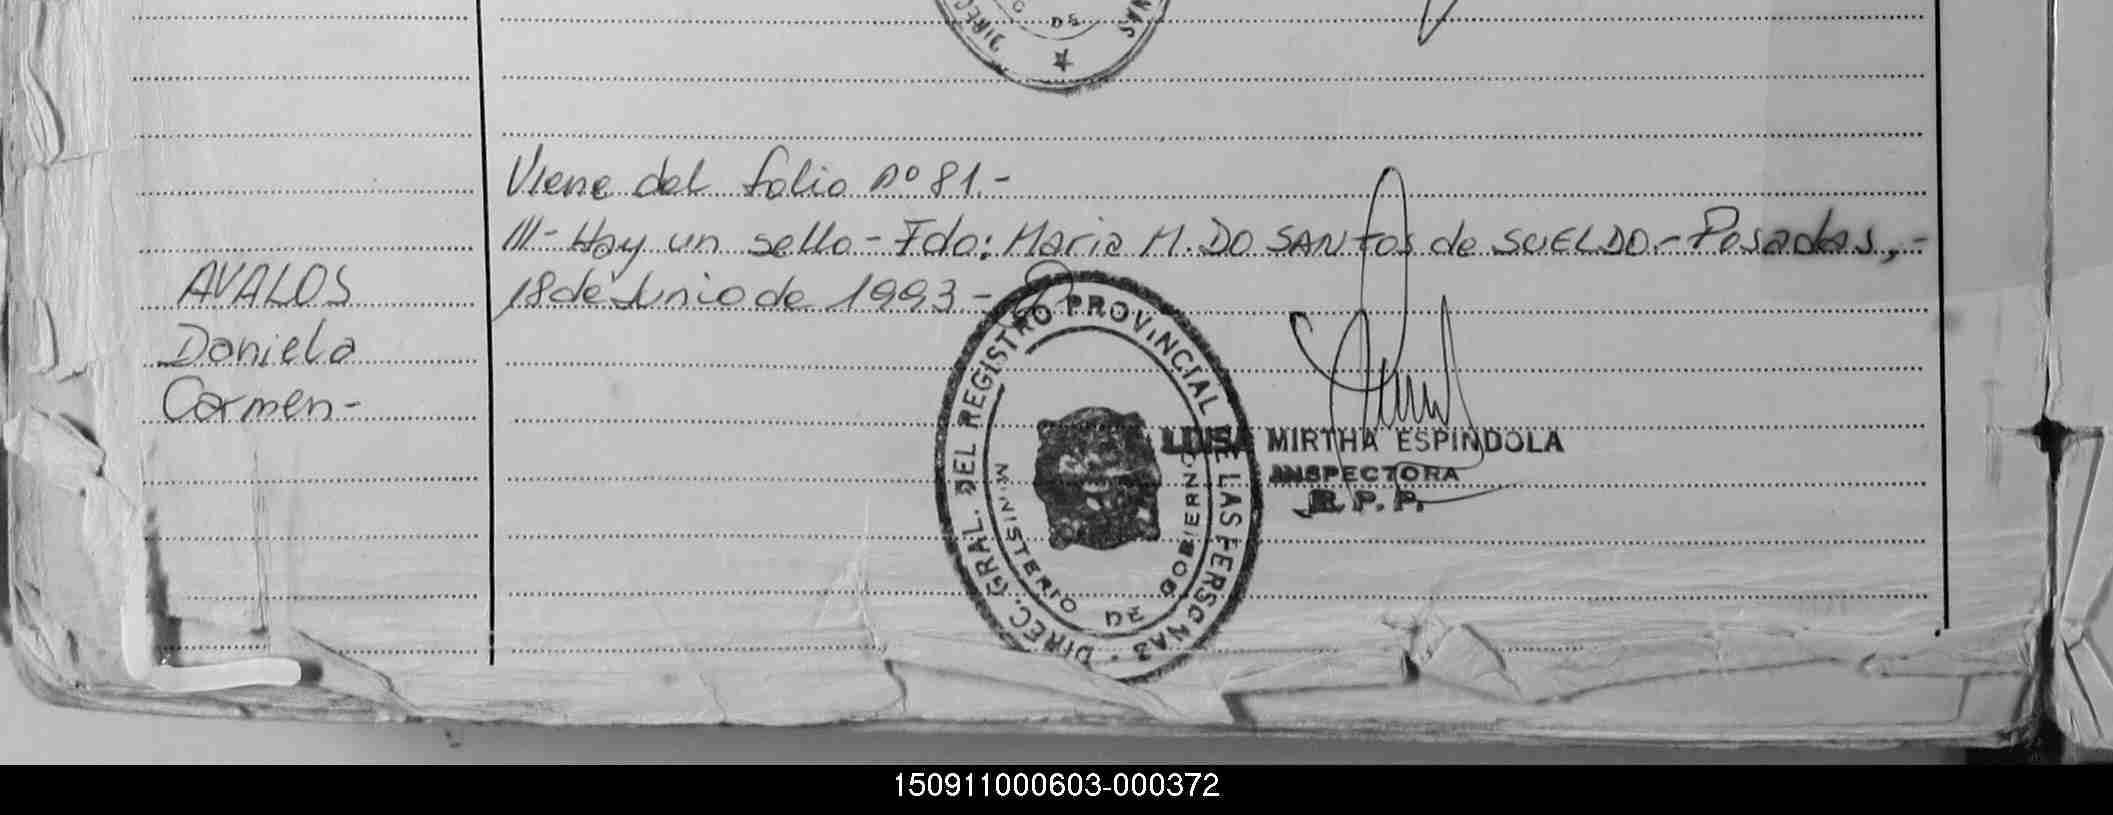 DIREC
DE
NAS
Viene del folio nº 81.-
///- Hay un sello - Fdo: Maria M. DO SANtos de SUELDO.- Posadas,-
AVALOS
18 de Junio de 1993 -
Daniela
Carmen-
DIREC. GRAL. DEL REGISTRO PROVINCIAL DE LAS PERSONAS
MINISTERIO DE GOBIERNO
LUISA MIRTHA ESPINDOLA
INSPECTORA
R. P. P.
150911000603-000372